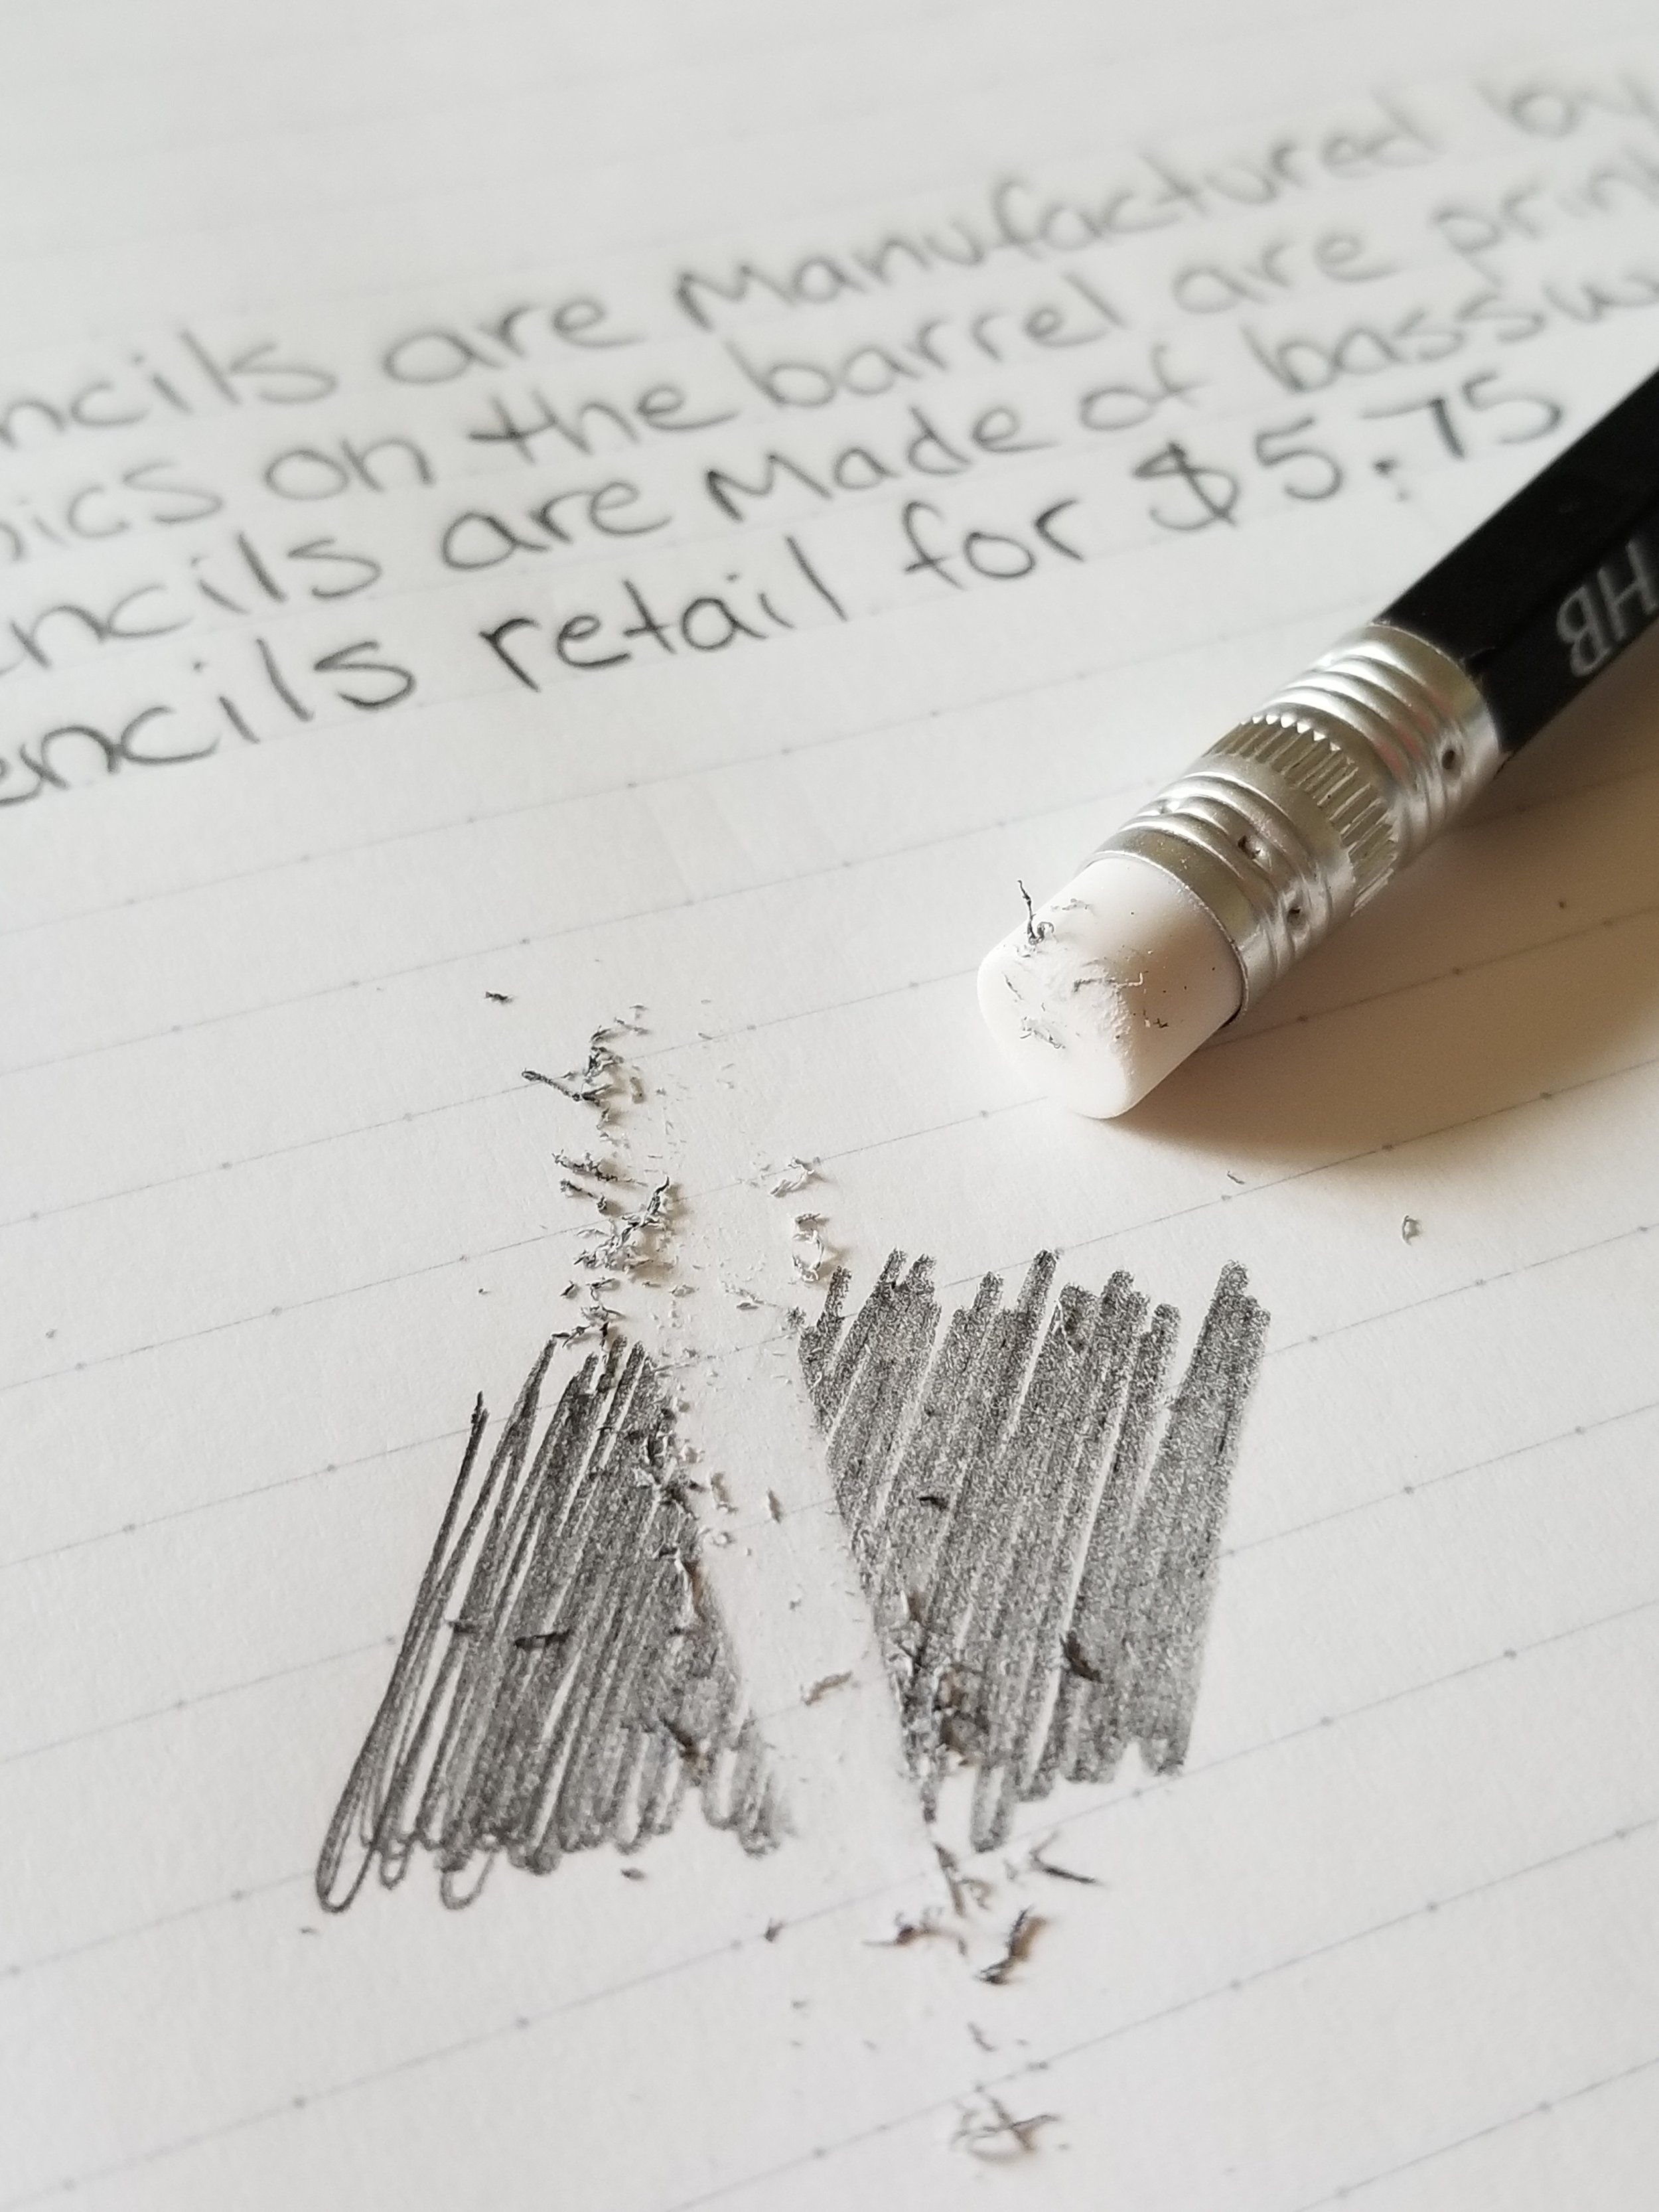 ncils are Manufactured by
ics on the barrel are print
ncils are Made of bassw
encils retail for $5.75
HB